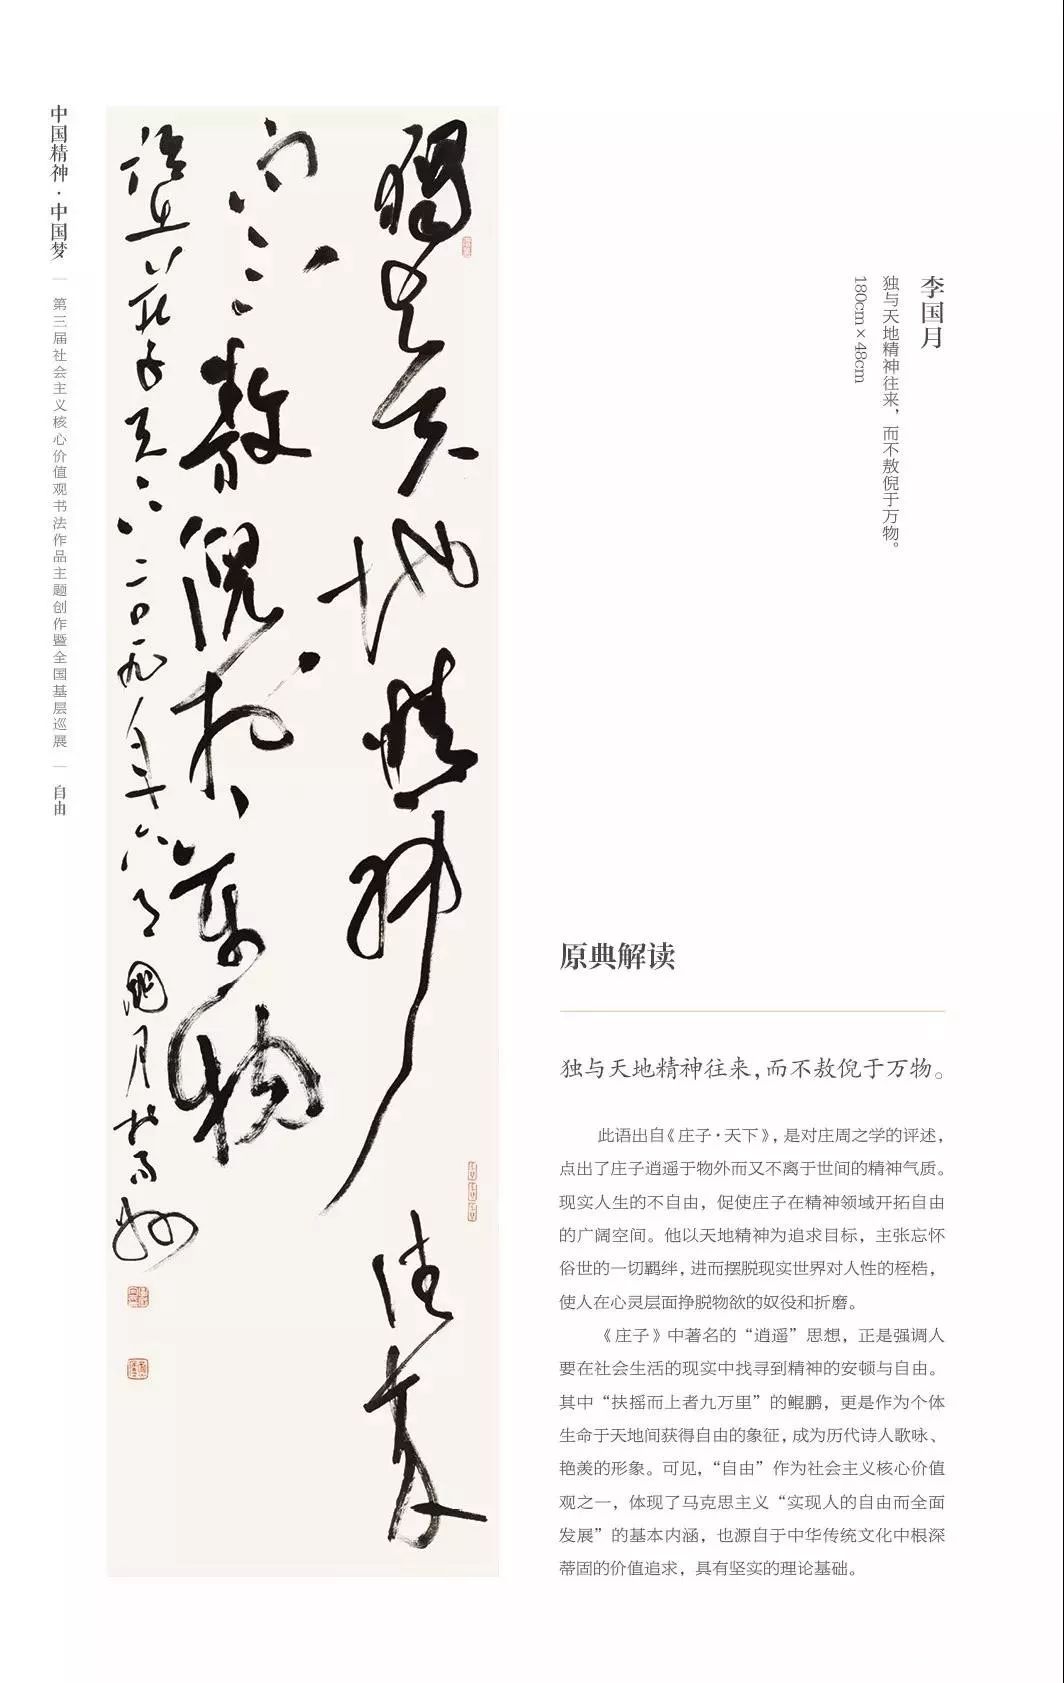 中国精神·中国梦
第三届社会主义核心价值观书法作品主题创作暨全国基层巡展
自由
獨与天地精神往来
而不敖倪於萬物
語出莊子天下二〇一九年六月國月於
李国月
独与天地精神往来，而不敖倪于万物。
180cm×48cm
原典解读
独与天地精神往来，而不敖倪于万物。
此语出自《庄子·天下》，是对庄周之学的评述，
点出了庄子逍遥于物外而又不离于世间的精神气质。
现实人生的不自由，促使庄子在精神领域开拓自由
的广阔空间。他以天地精神为追求目标，主张忘怀
俗世的一切羁绊，进而摆脱现实世界对人性的桎梏，
使人在心灵层面挣脱物欲的奴役和折磨。
《庄子》中著名的“逍遥”思想，正是强调人
要在社会生活的现实中找寻到精神的安顿与自由。
其中“扶摇而上者九万里”的鲲鹏，更是作为个体
生命于天地间获得自由的象征，成为历代诗人歌咏、
艳羡的形象。可见，“自由”作为社会主义核心价值
观之一，体现了马克思主义“实现人的自由而全面
发展”的基本内涵，也源自于中华传统文化中根深
蒂固的价值追求，具有坚实的理论基础。